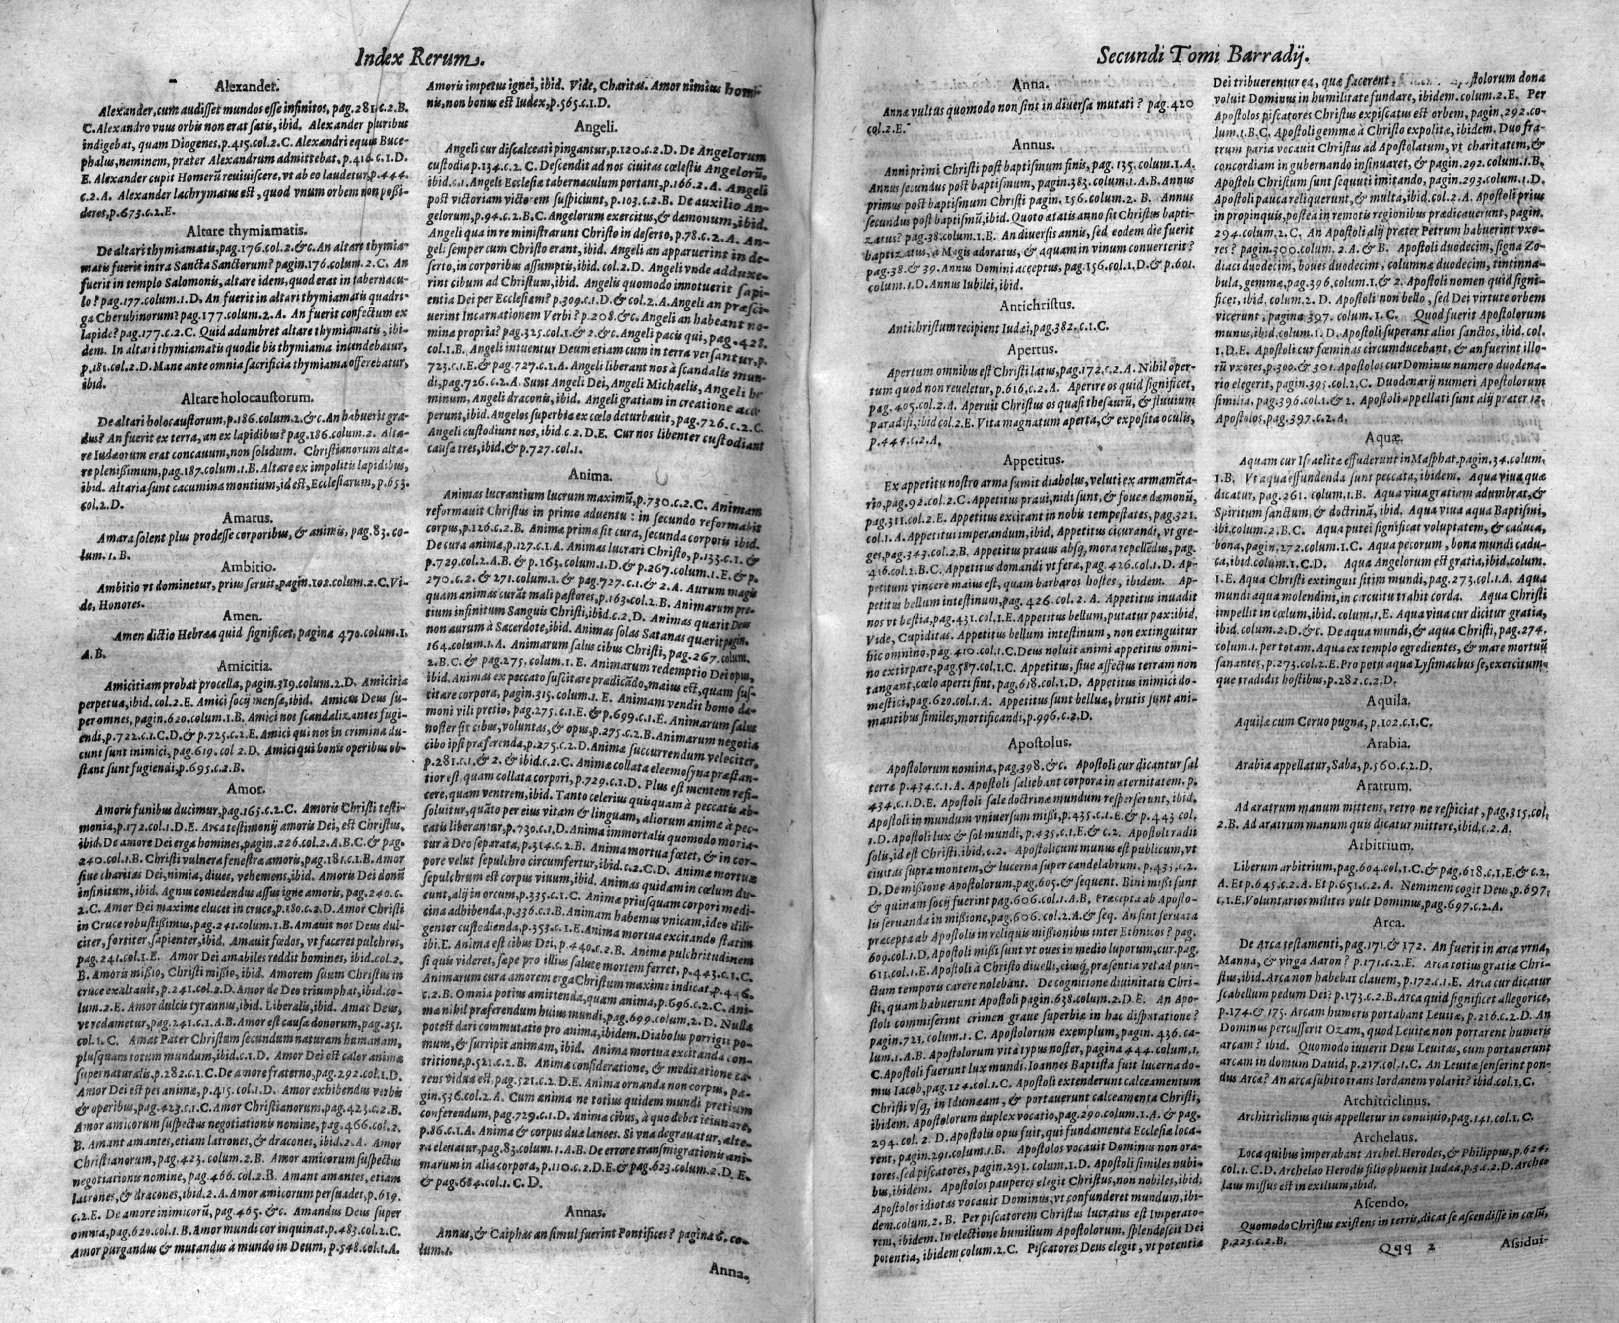 Index Rerum.
Alexander.
Alexander, cum audisset mundos esse infinitos, pag.281.c.2.B.
C. Alexandro vnus orbis non erat satis, ibid. Alexander pluribus
indigebat, quam Diogenes, p.415.col.2.C. Alexandri equus Buce-
phalus, neminem, præter Alexandrum admittebat, p.416.c.1.D.
E. Alexander cupit Homerũ reuiuiscere, vt ab eo laudetur, p.444.
c.2.A. Alexander lachrymatus est, quod vnum orbem non possi-
deret, p.673.c.2.E.
Altare thymiamatis.
De altari thymiamatis, pag.176.col.2.&c. An altare thymia-
matis fuerit intra Sancta Sanctorum? pagin.176.colum.2.C. An
fuerit in templo Salomonis, altare idem, quod erat in tabernacu-
lo? pag.177.column.1.D. An fuerit in altari thymiamatis quadri-
ga Cherubinorum? pag.177.colum.2.A. An fuerit confectum ex
lapide? pag.177.c.2.C. Quid adumbret altare thymiamatis, ibi-
dem. In altari thymiamatis quodie bis thymiama incendebatur,
p.181.col.2.D. Mane ante omnia sacrificia thymiama offerebatur,
ibid.
Altare holocaustorum.
De altari holocaustorum, p.186.colum.2.&c. An habuerit gra-
dus? An fuerit ex terra, an ex lapidibus? pag.186.colum.2. Alta-
re Iudæorum erat concauum, non solidum. Christianorum alta-
re plenissimum, pag.187.colum.1.B. Altare ex impolitis lapidibus,
ibid. Altaria sunt cacumina montium, id est, Ecclesiarum, p.653.
col.2.D.
Amarus.
Amara solent plus prodesse corporibus, & animis, pag.83.co-
lum.1.B.
Ambitio.
Ambitio vt dominetur, prius seruit, pagin.102.colum.2.C. Vi-
de, Honores.
Amen.
Amen dictio Hebræa quid significet, pagina 470.colum.1.
A.B.
Amicitia.
Amicitiam probat procella, pagin.319.colum.2.D. Amicitia
perpetua, ibid.col.2.E. Amici socij mensæ, ibid. Amicus Deus su-
per omnes, pagin.620.colum.1.B. Amici nos scandalizantes fugi-
endi, p.722.c.1.C.D.& p.725.c.2.E. Amici qui nos in crimina du-
cunt sunt inimici, pag.619.col 2.D. Amici qui bonis operibus ob-
stant sunt fugiendi, p.695.c.2.B.
Amor.
Amoris funibus ducimur, pag.165.c.2.C. Amoris Christi testi-
monia, p.172.col.1.D.E. Arca testimonij amoris Dei, est Christus,
ibid. De amore Dei erga homines, pagin.226.col.2.A.B.C.& pag.
240.col.1.B. Christi vulnera fenestra amoris, pag.181.c.1.B. Amor
siue charitas Dei, nimia, diues, vehemens, ibid. Amoris Dei donũ
infinitum, ibid. Agnus comedendus assus igne amoris, pag.240.c.
2.C. Amor Dei maxime elucet in cruce, p.180.c.2.D. Amor Christi
in Cruce robustissimus, pag.241.colum.1.B. Amauit nos Deus dul-
citer, fortiter, sapienter, ibid. Amauit fœdos, vt faceret pulchros,
pag.241.col.1.E. Amor Dei amabiles reddit homines, ibid.col.2.
B. Amoris missio, Christi missio, ibid. Amorem suum Christus in
cruce exaltauit, p.241.col.2.D. Amor de Deo triumphat, ibid.co-
lum.2.E. Amor dulcis tyrannus, ibid. Liberalis, ibid. Amat Deus,
vt redametur, pag.241.c.1.A.B. Amor est causa donorum, pag.251.
col.1.C. Amat Pater Christum secundum naturam humanam,
plusquam totum mundum, ibid.c.1.D. Amor Dei est calor animæ
supernaturalis, p.282.c.1.C. De amore fraterno, pag.292.col.1.D.
Amor Dei est pes animæ, p.415.col.1.D. Amor exhibendus verbis
& operibus, pag.423.c.1.C. Amor Christianorum, pag.423.c.2.B.
Amor amicorum suspectus negotiationis nomine, pag.466.col.2.
B. Amant amantes, etiam latrones, & dracones, ibid.2.A. Amor
Christianorum, pag.423.colum.2.B. Amor amicorum suspectus
negotiationis nomine, pag.466.col.2.B. Amant amantes, etiam
latrones, & dracones, ibid.2.A. Amor amicorum persuadet, p.619.
c.2.E. De amore inimicorũ, pag.465.&c. Amandus Deus super
omnia, pag.620.col.1.B. Amor mundi cor inquinat.p.483.col.2.C.
Amor purgandus & mutandus à mundo in Deum, p.548.col.1.A.
Amoris impetus ignei, ibid. Vide, Charitas. Amor nimius homi-
nis, non bonus est Iudex, p.565.c.1.D.
Angeli.
Angeli cur discalceati pingantur, p.120.c.2.D. De Angelorum
custodia p.134.c.2.C. Descendit ad nos ciuitas cœlestis Angelorũ,
ibid.c.1. Angeli Ecclesiæ tabernaculum portant, p.166.2.A. Angeli
post victoriam victorem suspiciunt, p.103.c.2.B. De auxilio An-
gelorum, p.94.c.2.B.C. Angelorum exercitus, & dæmonum, ibid.
Angeli qua in re ministrarunt Christo in deserto, p.78.c.2.A. An-
geli semper cum Christo erant, ibid. Angeli an apparuerint in de-
serto, in corporibus assumptis, ibid.col.2.D. Angeli vnde adduxe-
rint cibum ad Christum, ibid. Angelis quomodo innotuerit sapi-
entia Dei per Ecclesiam? p.309.c.1.D.& col.2.A. Angeli an præsci-
uerint Incarnationem Verbi? p.208.&c. Angeli an habeant no-
mina propria? pag.325.col.1.& 2.&c. Angeli pacis qui, pag.428.
col.1.B. Angeli intuentur Deum etiam cum in terra versantur, p.
723.c.1.E.& pag.727.c.1.A. Angeli liberant nos à scandalis mun-
di, pag.726.c.2.A. Sunt Angeli Dei, Angeli Michaelis, Angeli ho-
minum, Angeli draconis, ibid. Angeli gratiam in creatione acce-
perunt, ibid. Angelos superbia ex cœlo deturbauit, pag.726.c.2.C.
Angeli custodiunt nos, ibid.c.2.D.E. Cur nos libenter custodiant
causæ tres, ibid.& p.727.col.1.
Anima.
Animas lucrantium lucrum maximũ, p.730.c.2.C. Animam
reformauit Christus in primo aduentu: in secundo reformabit
corpus, p.126.c.2.B. Animæ prima sit cura, secunda corporis ibid.
De cura animæ, p.127.c.1.A. Animas lucrari Christo, p.133.c.1.&
p.729.col.2.A.B.& p.163.colum.1.D.& p.267.colum.1.E.& p.
270.c.2.& 271.colum.1.& pag.727.c.1.& 2.A. Aurum magis
quam animas curãt mali pastores, p.163.col.2.B. Animarum pre-
tium infinitum Sanguis Christi, ibid.c.2.D. Animas quærit Deus
non aurum à Sacerdote, ibid. Animas solas Satanas quærit pagin.
164.colum.1.A. Animarum salus cibus Christi, pag.267.colum.
2.B.C.& pag.275.colum.1.E. Animarum redemptio Dei opus,
ibid. Animas ex peccato suscitare prædicãdo, maius est, quam sus-
citare corpora, pagin.315.colum.1.E. Animam vendit homo dæ-
moni vili pretio, pag.275.c.1.E.& p.699.c.1.E. Animarum salus
noster sit cibus, voluntas, & opus, p.275.c.2.B. Animarum negotia
cibo ipsi præferenda, p.275.c.2.D. Animæ succurrendum velociter,
p.281.c.1.& 2.& ibid.c.2.C. Animæ collata eleemosyna præstan-
tior est, quam collata corpori, p.729.c.1.D. Plus est mentem refi-
cere, quam ventrem, ibid. Tanto celerius quisquam à peccatis ab-
soluitur, quãto per eius vitam & linguam, aliorum animæ à pec-
catis liberantur, p.730.c.1.D. Anima immortalis quomodo moria-
tur à Deo separata, p.314.c.2.B. Anima mortua fœtet, & in cor-
pore velut sepulchro circumfertur, ibid.c.2.C.D. Animæ mortuæ
sepulchrum est corpus viuum, ibid. Animas quidam in cœlum du-
cunt, alij in orcum, p.335.c.1.C. Animæ prius quam corpori medi-
cina adhibenda, p.336.c.1.B. Animam habemus vnicam, ideo dili-
genter custodienda, p.353.c.1.E. Anima mortua excitanda statim
ibi.E. Anima est cibus Dei, p.440.c.2.B. Animæ pulchritudinem
si quis videret, sæpe pro illius salute mortem ferret, p.443.c.1.C.
Animarum cura amorem erga Christum maxime indicat, p.446.
c.2.B. Omnia potius amittenda, quam anima, p.696.c.2.C. Ani-
ma nihil præferendum huius mundi, pag.699.colum.2.D. Nulla
potest dari commutatio pro anima, ibidem. Diabolus porrigit po-
mum, & surripit animam, ibid. Anima mortua excitanda con-
tritione, p.521.c.2.B. Animæ consideratione, & meditatione ca-
rens vidua est, pag.521.c.2.D.E. Anima ornanda non corpus, pa-
gin.536.col.2.A. Cum anima ne totius quidem mundi pretium
conferendum, pag.729.c.1.D. Animæ cibus, à quo debet ieiunare,
p.86.c.1.A. Anima & corpus duæ lances. Si vna degrauatur, alte-
ra eleuatur, pag.83.colum.1.A.B. De errore transmigrationis ani-
marum in alia corpora, p.110.c.2.D.E.& pag.623.colum.2.D.E.
& pag.684.col.1.C.D.
Annas.
Annas, & Caiphas an simul fuerint Pontifices? pagina 6.co-
lum.1.
Anna,
Secundi Tomi Barradij.
Anna.
Annæ vultus quomodo non sint in diuersa mutati? pag.420
col.2.E.
Annus.
Anni primi Christi post baptismum finis, pag.135.colum.1.A.
Annus secundus post baptismum, pagin.383.colum.1.A.B. Annus
primus post baptismum Christi pagin.156.colum.2.B. Annus
secundus post baptismũ, ibid. Quoto ætatis anno sit Christus bapti-
zatus? pag.38.colum.1.B. An diuersis annis, sed eodem die fuerit
baptizatus, à Magis adoratus, & aquam in vinum conuerterit?
pag.38.& 39. Annus Domini acceptus, pag.156.col.1.D.& p.601.
colum.1.D. Annus Iubilei, ibid.
Antichristus.
Antichristum recipient Iudæi, pag.382.c.1.C.
Apertus.
Apertum omnibus est Christi latus, pag.172.c.2.A. Nihil oper-
tum quod non reueletur, p.616.c.2.A. Aperire os quid significet,
pag.405.col.2.A. Aperuit Christus os quasi thesaurũ, & fluuium
paradisi, ibid col.2.E. Vita magnatum aperta, & exposita oculis,
p.444.c.2.A.
Appetitus.
Ex appetitu nostro arma sumit diabolus, veluti ex armamẽta-
rio, pag.92.col.2.C. Appetitus praui, nidi sunt, & foueæ dæmonũ,
pag.311.col.2.E. Appetitus excitant in nobis tempestates, pag.321.
col.1.A. Appetitus imperandum, ibid, Appetitus cicurandi, vt gre-
ges, pag.343.col.2.B. Appetitus prauus absq; mora repellẽdus, pag.
416.col.2.B.C. Appetitus domandi vt feræ, pag.426.col.1.D. Ap-
petitum vincere maius est, quam barbaros hostes, ibidem. Ap-
petitus bellum intestinum, pag.426.col.2.A. Appetitus inuadit
nos vt bestia, pag.431.col.1.E. Appetitus bellum, putatur pax: ibid.
Vide, Cupiditas. Appetitus bellum intestinum, non extinguitur
hic omnino, pag.410.col.1.C. Deus noluit animi appetitus omni-
no extirpare, pag.587.col.1.C. Appetitus, siue affectus terram non
tangant, cœlo aperti sint, pag.618.col.1.D. Appetitus inimici do-
mestici, pag.620.col.1.A. Appetitus sunt belluæ, brutis sunt ani-
mantibus similes, mortificandi, p.996.c.2.D.
Apostolus.
Apostolorum nomina, pag.398.&c. Apostoli cur dicantur sal
terræ p.434.c.1.A. Apostoli saliebant corpora in æternitatem, p.
434.c.1.D.E. Apostoli sale doctrinæ mundum resperserunt, ibid,
Apostoli in mundum vniuersum missi, p.435.c.1.E.& p.443 col.
1.D. Apostoli lux & sol mundi, p.435.c.1.E.& c.2. Apostoli radii
solis, id est Christi.ibid.c.2. Apostolicum munus est publicum, vt
ciuitas supra montem, & lucerna super candelabrum. p.435.c.2.
D. De missione Apostolorum, pag.605.& sequent. Bini missi sunt
& quinam socij fuerint pag.606.col.1.A.B. Præcepta ab Aposto-
lis seruanda in missione, pag.606.col.2.A.& seq. An sint seruata
præcepta ab Apostolis in reliquis missionibus inter Ethnicos? pag.
609.col.1.D. Apostoli missi sunt vt oues in medio luporum, cur.pag.
611.col.1.E. Apostoli à Christo diuelli, eiusq; præsentia vel ad pun-
ctum temporis carere nolebant. De cognitione diuinitatis Chri-
sti, quam habuerunt Apostoli pagin.638.colum.2.D.E. An Apo-
stoli commiserint crimen graue superbiæ in hac disputatione?
pagin.721.colum.1.C. Apostolorum exemplum, pagin.436.co-
lum.1.A.B. Apostolorum vita typus noster, pagina 444.colum.1.
C. Apostoli fuerunt lux mundi. Ioannes Baptista fuit lucerna do-
mus Iacob, pag.124.col.1.C. Apostoli extenderunt calceamentum
Christi vsq; in Idumæam, & portauerunt calceamenta Christi,
ibidem. Apostolorum duplex vocatio, pag.290.colum.1.A.& pag.
294.col.2.D. Apostolis opus fuit, qui fundamenta Ecclesiæ loca-
rent, pagin.291.colum.1.B. Apostolos vocauit Dominus non ora-
tores, sed piscatores, pagin.291.colum.1.D. Apostoli similes nubi-
bus, ibidem. Apostolos pauperes elegit Christus, non nobiles, ibid.
Apostolos idiotas vocauit Dominus, vt confunderet mundum, ibi-
dem.colum.2.B. Per piscatorem Christus lucratus est Imperato-
rem, ibidem. In electione humilium Apostolorum, splendescit Dei
potentia, ibidem colum.2.C. Piscatores Deus elegit, vt potentiæ
Dei tribuerentur ea, quæ facerent, Apostolorum dona
voluit Dominus in humilitate fundare, ibidem.colum.2.E. Per
Apostolos piscatores Christus expiscatus est orbem, pagin.292.co-
lum.1.B.C. Apostoli gemmæ à Christo expolitæ, ibidem. Duo fra-
trum paria vocauit Christus ad Apostolatum, vt charitatem, &
concordiam in gubernando insinuaret, & pagin.292.colum.1.B.
Apostoli Christum sunt sequuti imitando, pagin.293.colum.1.D.
Apostoli pauca reliquerunt, & multa, ibid.col.2.A. Apostoli prius
in propinquis, postea in remotis regionibus prædicauerunt, pagin.
294.colum.2.C. An Apostoli alij præter Petrum habuerint vxo-
res? pagin.300.colum.2.A.& B. Apostoli duodecim, signa Zo-
diaci duodecim, boues duodecim, columnæ duodecim, tintinna-
bula, gemmæ, pag.396.colum.1.& 2. Apostoli nomen quid signi-
ficet, ibid.colum.2.D. Apostoli non bello, sed Dei virtute orbem
vicerunt, pagina 397.colum.1.C. Quod fuerit Apostolorum
munus, ibid.colum.1.D. Apostoli superant alios sanctos, ibid.col.
1.D.E. Apostoli cur fœminas circumducebant, & an fuerint illo-
rũ vxores, p.300.& 301. Apostolos cur Dominus numero duodena-
rio elegerit, pagin.395.col.2.C. Duodenarij numeri Apostolorum
similia, pag.396.col.1.& 2. Apostoli appellati sunt alij præter 12.
Apostolos, pag.397.c.2.A.
Aquæ.
Aquam cur Israelitæ effuderunt in Masphat.pagin.34.colum.
1.B. Vt aqua effundenda sunt peccata, ibidem. Aqua viua quæ
dicatur, pag.261.colum.1.B. Aqua viua gratiam adumbrat, &
Spiritum sanctum, & doctrinã, ibid. Aqua viua aqua Baptismi,
ibi.colum.2.B.C. Aqua putei significat voluptatem, & caduca,
bona, pagin.272.colum.1.C. Aqua pecorum, bona mundi cadu-
ca, ibid.colum.1.C.D. Aqua Angelorum est gratia, ibid.colum.
1.E. Aqua Christi extinguit sitim mundi, pag.273.col.1.A. Aqua
mundi aqua molendini, in circuitu trahit corda. Aqua Christi
impellit in cœlum, ibid.colum.1.E. Aqua viua cur dicitur gratia,
ibid.colum.2.D.&c. De aqua mundi, & aqua Christi, pag.274.
colum.1.per totam. Aqua ex templo egredientes, & mare mortuũ
sanantes, p.273.col.2.E. Pro potu aquæ Lysimachus se, exercitum-
que tradidit hostibus, p.282.c.2.D.
Aquila.
Aquilæ cum Ceruo pugna, p.102.c.1.C.
Arabia.
Arabia appellatur, Saba, p.560.c.2.D.
Aratrum.
Ad aratrum manum mittens, retro ne respiciat, pag.315.col.
2.B. Ad aratrum manum quis dicatur mittere, ibid.c.2.A.
Arbitrium.
Liberum arbitrium, pag.604.col.1.C.& pag.618.c.1.E.& c.2.
A. Et p.645.c.2.A. Et p.651.c.2.A. Neminem cogit Deus, p.697.
c.1.E. Voluntarios milites vult Dominus, pag.697.c.2.A.
Arca.
De Arca testamenti, pag.171.& 172. An fuerit in arca vrna,
Manna, & virga Aaron? p.171.c.2.E. Arca totius gratiæ Chri-
stus, ibid. Arca non habebat clauem, p.172.c.1.E. Arca cur dicatur
scabellum pedum Dei? p.173.c.2.B. Arca quid significet allegorice,
p.174.& 175. Arcam humeris portabant Leuitæ, p.216.c.2.D. An
Dominus percusserit Ozam, quod Leuitæ non portarent humeris
arcam? ibid. Quomodo iuuerit Deus Leuitas, cum portauerunt
arcam in domum Dauid, p.217.col.1.C. An Leuitæ senserint pon-
dus Arcæ? An arca subito trans Iordanem volarit? ibid.col.1.C.
Architriclinus.
Architriclinus quis appelletur in conuiuio, pag.141.col.1.C.
Archelaus.
Loca quibus imperabant Archel. Herodes, & Philippus, p.624.
col.1.C.D. Archelao Herodis filio obuenit Iudæa, p.32.2.D. Arche-
laus missus est in exilium, ibid.
Ascendo.
Quomodo Christus existens in terris, dicat se ascendisse in cœlũ,
p.225.c.2.B.
Qqq 2
Assidui-